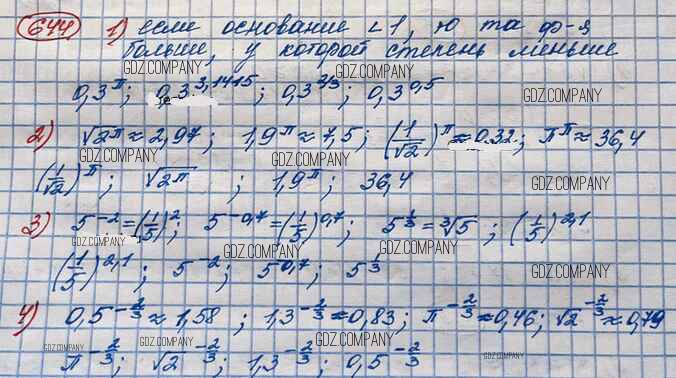 644 1) если основание < 1, то та ф-я
больше, у которой степень меньше
GDZ.COMPANY GDZ.COMPANY GDZ.COMPANY
0,3^π; 0,3^3,1415; 0,3^2/3; 0,3^0,5
2) √2^π ≈ 2,97; 1,9^π ≈ 7,5; (1/√2)^π ≈ 0,32; π^π ≈ 36,4
GDZ.COMPANY GDZ.COMPANY GDZ.COMPANY
(1/√2)^π; √2^π; 1,9^π; 36,4
3) 5^-2 = (1/5)^2; 5^-0,7 = (1/5)^0,7; 5^1/3 = ∛5; (1/5)^2,1
GDZ.COMPANY GDZ.COMPANY GDZ.COMPANY GDZ.COMPANY
(1/5)^2,1; 5^-2; 5^0,7; 5^1/3
4) 0,5^-2/3 ≈ 1,58; 1,3^-2/3 ≈ 0,83; π^-2/3 ≈ 0,46; √2^-2/3 ≈ 0,79
GDZ.COMPANY GDZ.COMPANY GDZ.COMPANY GDZ.COMPANY
π^-2/3; √2^-2/3; 1,3^-2/3; 0,5^-2/3